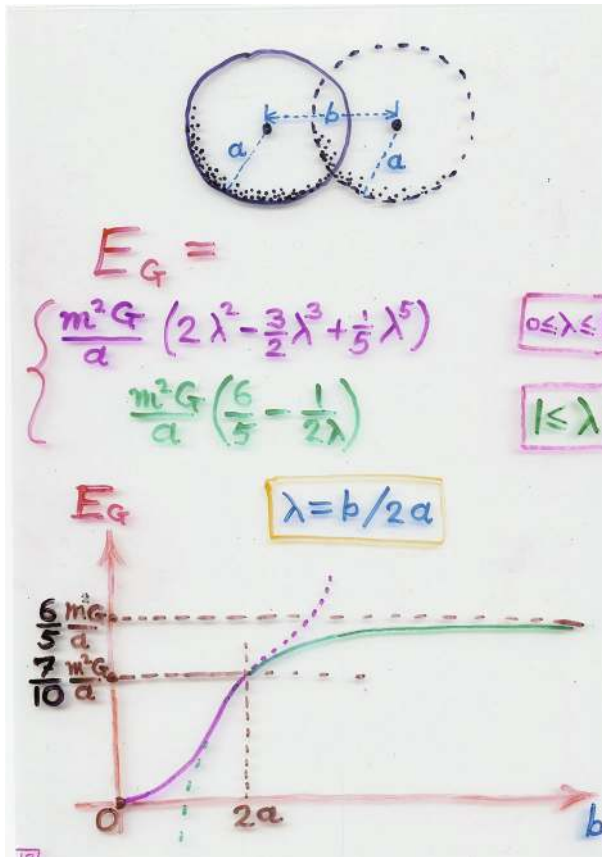 b
a a
E_G =
m²G/a (2λ² − 3/2 λ³ + 1/5 λ⁵) 0≤λ≤
m²G/a (6/5 − 1/2λ) 1≤λ
E_G
λ=b/2a
6/5 m²G/a
7/10 m²G/a
0 2a b